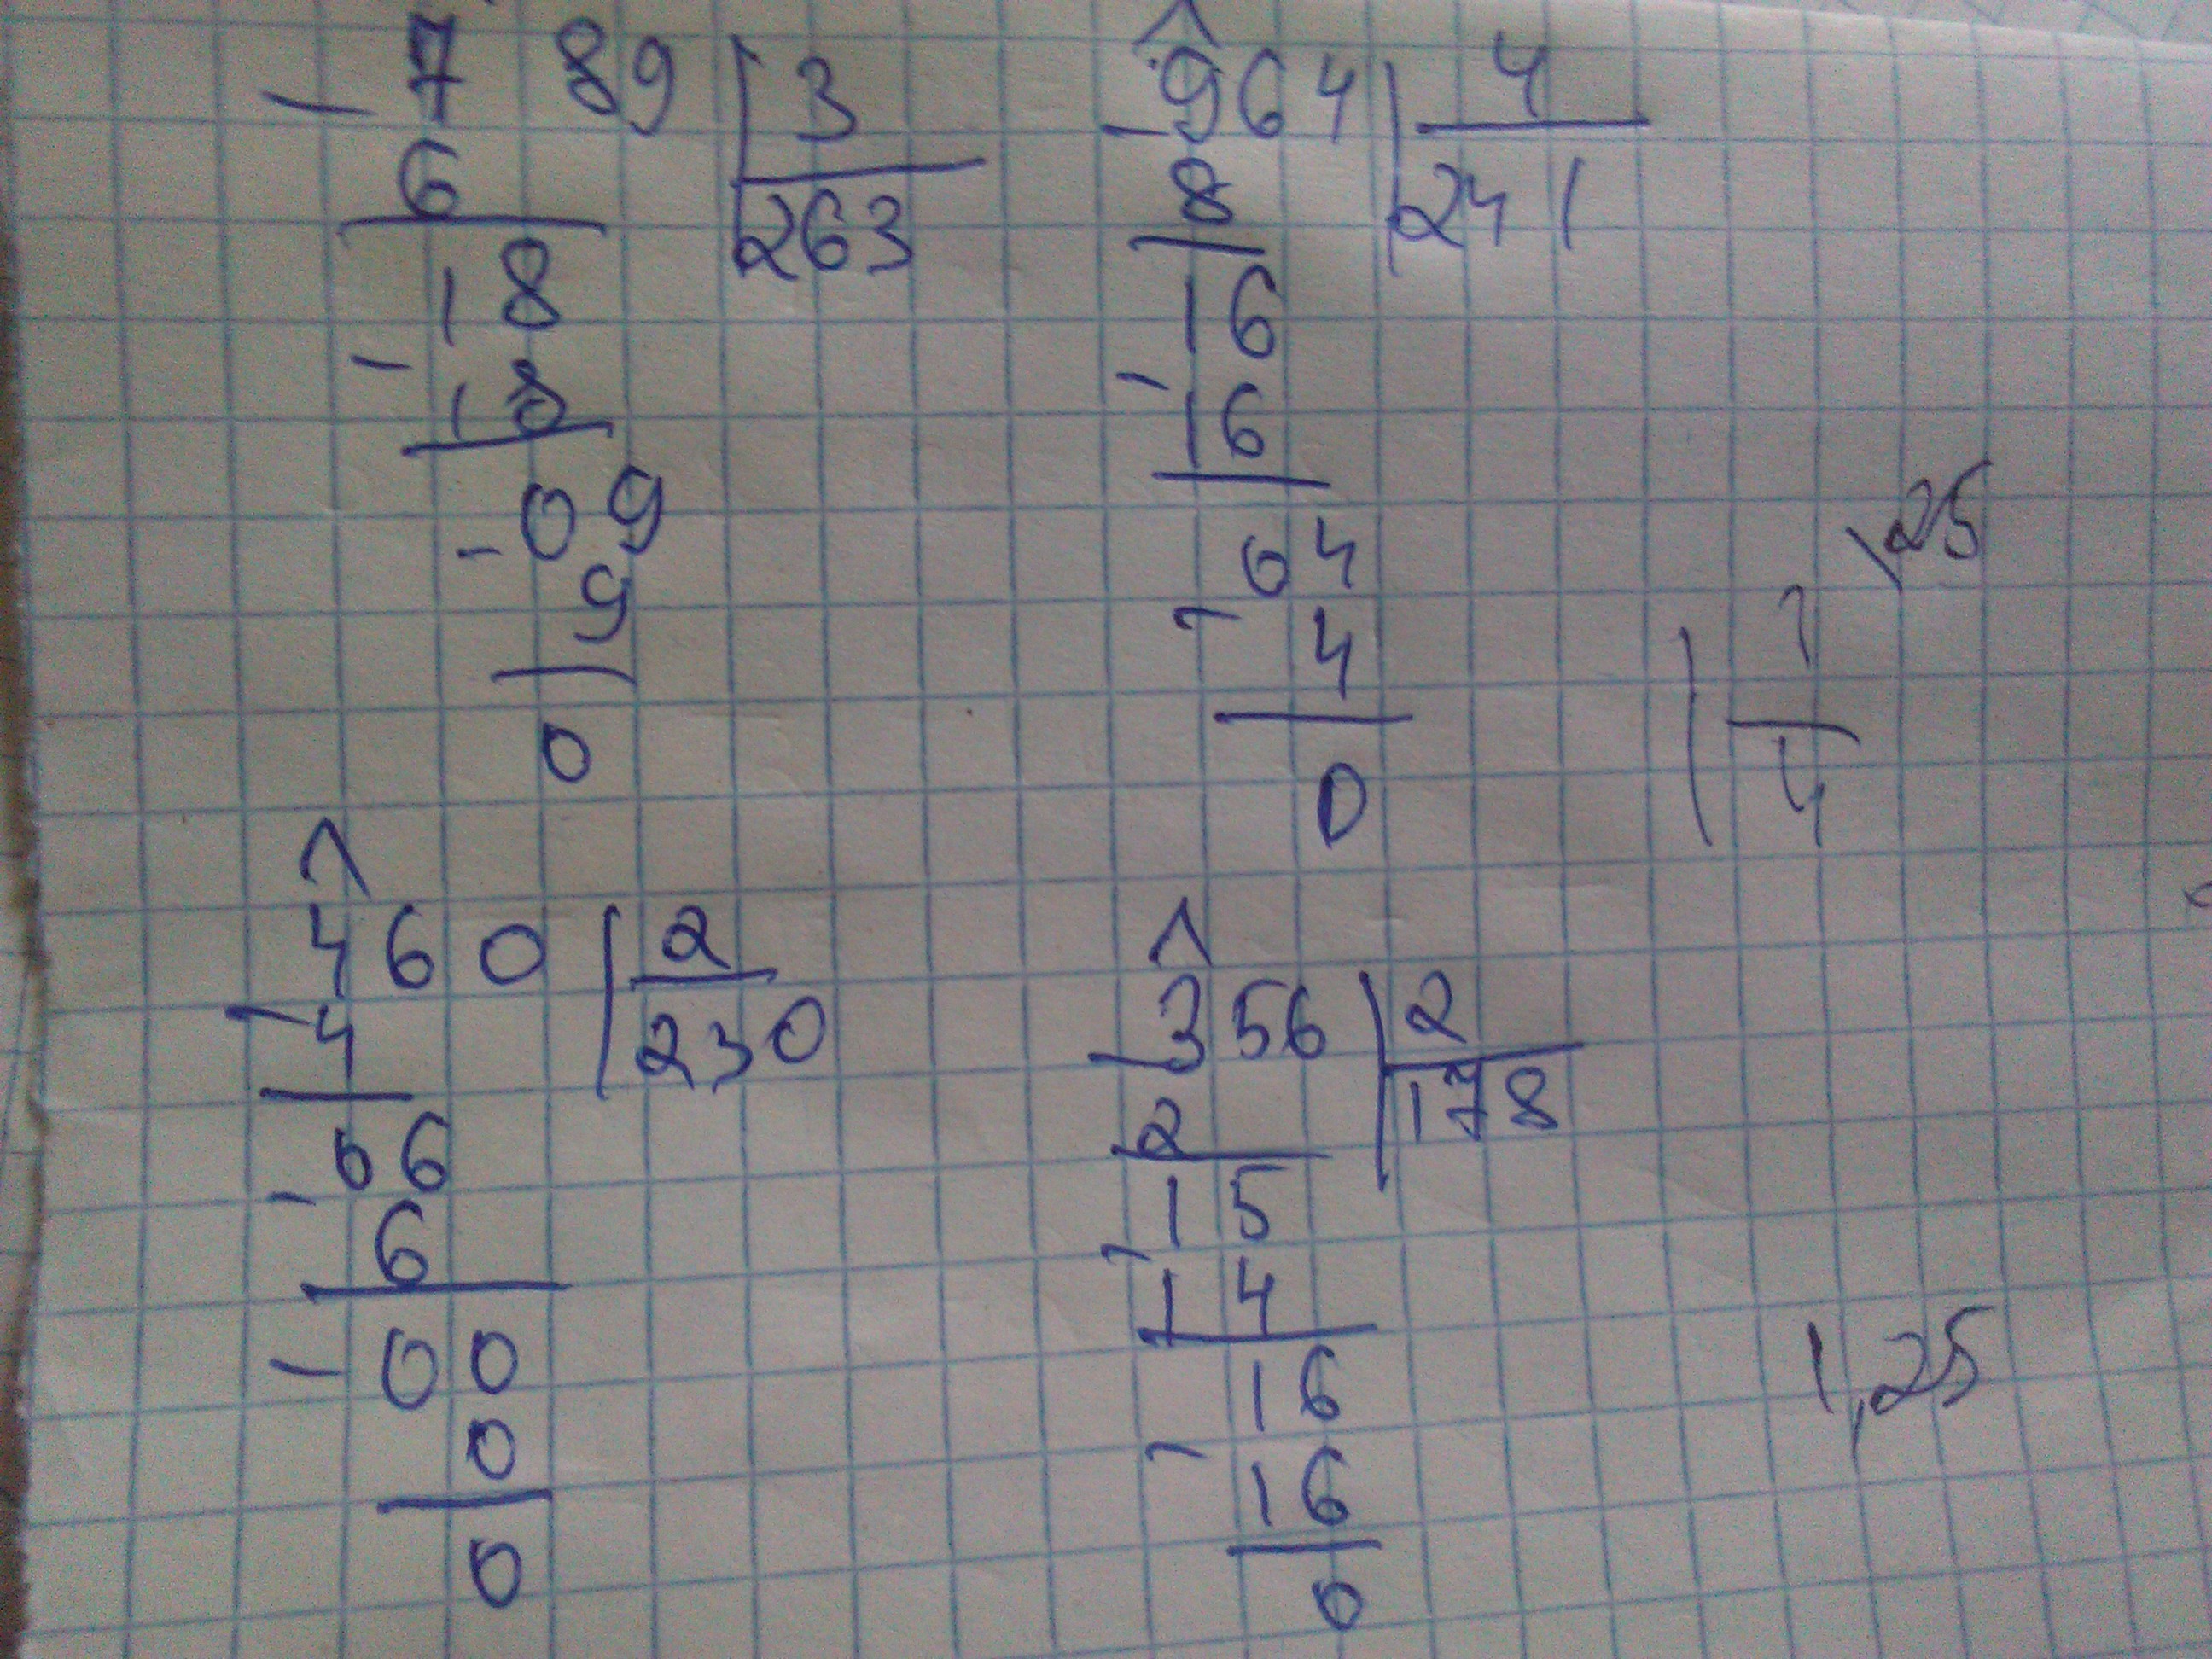 - 7 89 | 3
6 263
18
- 18
- 09
9
0
- 964 | 4
8 241
16
- 16
04
- 4
0
460 | 2
- 4 230
06
- 6
- 00
0
0
- 356 | 2
2 178
15
- 14
16
- 16
0
1,25
1
4
1,25